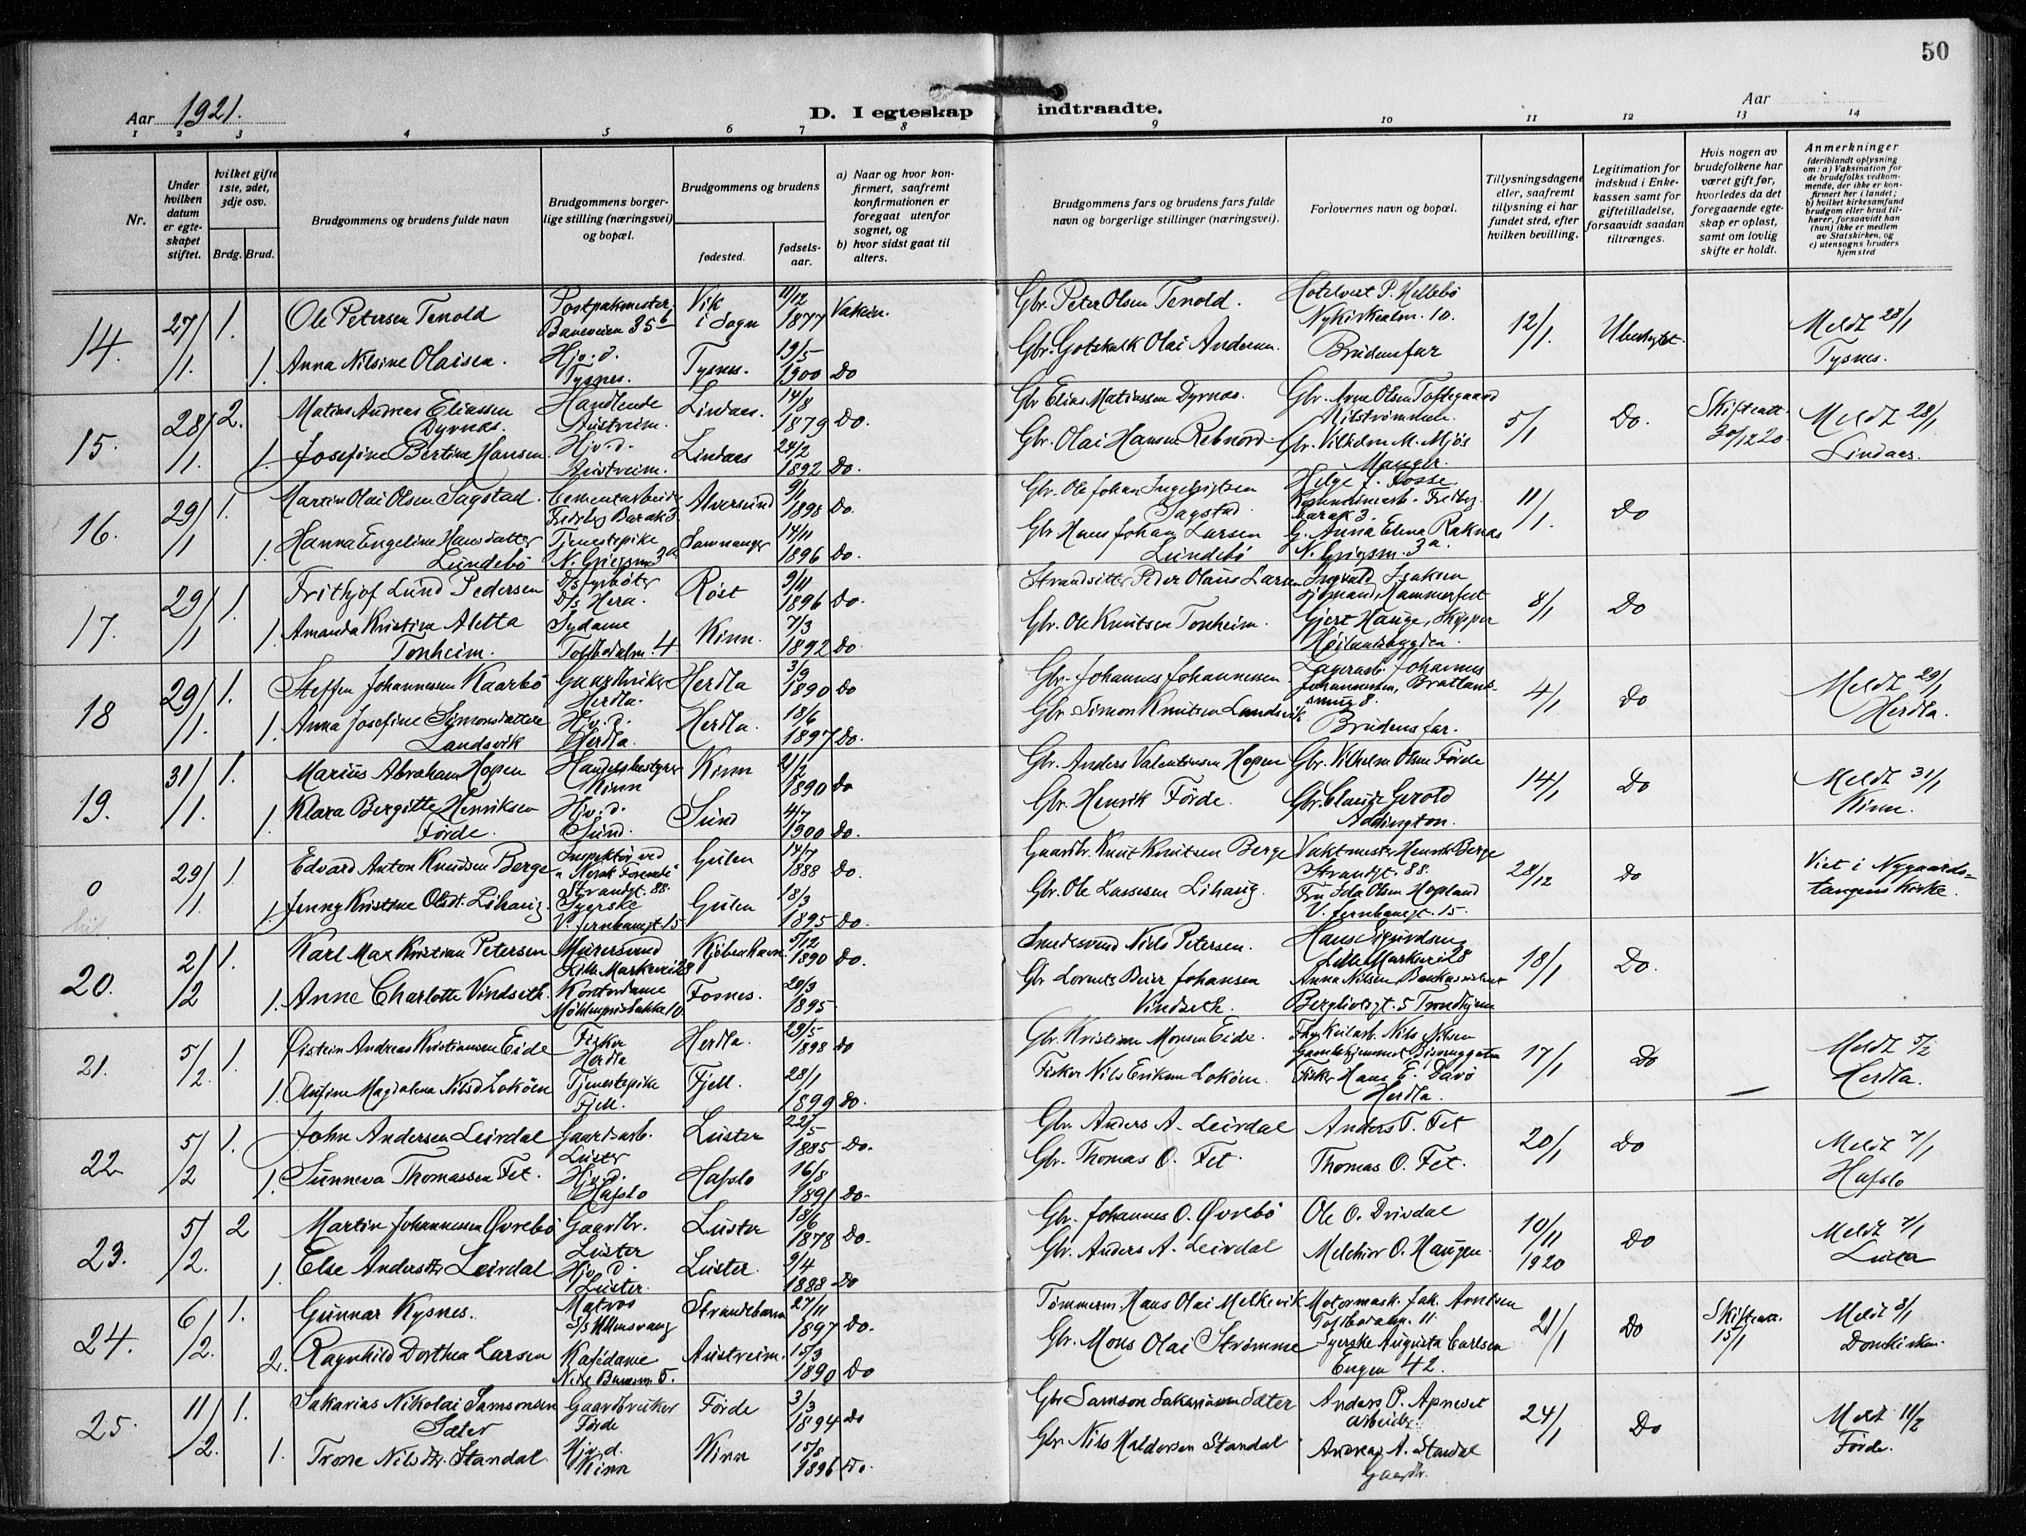 50
Aar 1921.
D. I egteskap indtraadte.
Aar
1 2 3 4 5 6 7 8 9 10 11 12 13 14
Nr.
Under hvilken datum er egteskapet stiftet.
hvilket gifte 1ste, 2det, 3dje osv.
Brdg. Brud.
Brudgommens og brudens fulde navn
Brudgommens borgerlige stilling (næringsvei) og bopæl.
Brudgommens og brudens
fødested.
fødselsaar.
a) Naar og hvor konfirmert, saafremt konfirmationen er foregaat utenfor sognet, og
b) hvor sidst gaat til alters.
Brudgommens fars og brudens fars fulde navn og borgerlige stillinger (næringsvei).
Forlovernes navn og bopæl.
Tillysningsdagene eller, saafremt tillysning ei har fundet sted, efter hvilken bevilling.
Legitimation for indskud i Enkekassen samt for giftetilladelse, forsaavidt saadan tiltrænges.
Hvis nogen av brudefolkene har været gift før, hvorledes da det foregaaende egteskap er opløst, samt om lovlig skifte er holdt.
Anmerkninger
(deriblandt oplysning om: a) Vaksination for de brudefolks vedkommende, der ikke er konfirmert her i landet; b) hvilket kirkesamfund brudgom eller brud tilhører, forsaavidt han (hun) ikke er medlem av Statskirken, og c) utensogns bruders hjemsted
14. 27/1. 1. Ole Petersen Tenold Postpakmester Vik i Sogn 11/12 1877 Gbr. Peter Olsen Tenold. Hotelvert P. Hellebø Nykirkealm. 10. 12/1 Ubeskyttet Meldt 28/1 Tysnes.
1. Anna Nilsine Olaisen. Hjv. d. Tysnes. Tysnes. 19/5 1900 Do Gbr. Gotskalk Olai Andersen Brudens far
15. 28/1. 2. Matias Andreas Eliassen Dyrnæs. Handlende Austreim. Lindaas. 14/8 1879 Do. Gbr. Elias Matiassen Dyrnæs. Gbr. Arne Olsen Toftegaard 5/1 Do. Skifteatt. 30/12 20 Meldt 28/1 Lindaas.
1. Josefine Bertine Hansen Hjv. d. Austreim. Lindaas 24/2 1892 Do. Gbr. Olai Hansen Rebnord. Gbr. Vilhelm M. Mjøs Manger.
16. 29/1 1. Martin Olai Olsen Sagstad. Cementarbeider Fredsbg Barak 3. Alversund 9/1 1898 Do. Gbr. Ole Johan Ingebrigtsen Sagstad. Helge J. Fosse barak 3. 11/1. Do
1. Hanna Engeline Hansdatter Lundebø Tjenestepike N. Griegsm 3a Samnanger 14/11 1896 Do. Gbr. Hans Johan Larsen Lundebø G. Anna Elena Raknes N. Griegsm. 3a.
17. 29/1 1. Frithjof Lund Pedersen D/s fyrbøter D/s Hera. Røst 9/11 1896 Do. Strandsitter Peder Olaus Larsen Ingvald Isaksen sjømand, Hammerfest 8/1 Do
1. Amanda Kristine Aletta Tonheim. Sydame Toldbodalm. 4 Kinn. 7/3 1892 Do Gbr. Ole Knutsen Tonheim. Gjert Hauge, Skipper
18 29/1. 1. Steffen Johannessen Kaarbø Gaardbruker Herdla. Herdla 3/9 1890 Do Gbr. Johannes Johannessen Lagerarb. Johannes Johannessen, Bratlandsmug 8. 4/1 Do Meldt 29/1 Herdla.
1. Anna Josefine Simonsdatter Landsvik Hjv. d. Herdla. Herdla. 18/6 1897 Do. Gbr. Simon Knutsen Landsvik Brudens far.
19. 31/1. 1. Marius Abraham Hopen Handelsbestyrer Kinn Kinn 1890 Do Gbr. Anders Valentinsen Hopen Gbr. Vilhelm Olsen Førde 14/1 Do Meldt 31/1 Kinn.
1. Klara Bergitte Henriksen Førde. Hjv. d. Sund. Sund 4/7 1900 Do. Gbr. Henrik Førde. Addington.
0 29/1. 1. Edvard Anton Knudsen Berge Inspektør ved "Norsk Forende" Strandgt. 88. Gulen 14/7 1888 Do. Gaardbr. Knut Knutsen Berge Vaktmester Henrik Berge Strandgt. 88. 28/12 Do Viet i Nygaardstangens kirke.
1. Jenny Kristine Olsdt. Lihaug. Syerske V. Jernbanegt. 15 Gulen 18/3 1895 Do. Gbr. Ole Lassesen Lihaug. Fru Ida Olsen Hopland V. Jernbanegt. 15.
20. 2/2 1. Karl Max Kristian Petersen Murersvend Lille Markevei 28 Kjøbenhavn 5/12 1890 Do. Smedesvend Niels Petersen. Hans Sigurdsen Lille Markevei 28 18/1 Do.
1. Anne Charlotte Vindseth. Kontordame Møhlenprisbakke 10 Fosnes. 20/3 1895. Gbr. Lornts Beier Johansen Vindseth. Anna Nilsen Bankassistent Bergliotsgt. 5 Trondhjem
21. 5/2. 1. Øistein Andreas Kristiansen Eide Fisker Herdla Herdla. 29/5 1898 Do Gbr. Kristian Monsen Eide. Nils Nilsen 17/1 Do Meldt 5/2 Herdla.
1. Olufine Magdalena Nilsd. Lokøen Tjenestepike Fjell. Fjell. 28/1 1899 Do. Fisker Nils Eriksen Lokøen. Fisker Hans E. Davø Herdla.
22. 5/2 1. John Andersen Leirdal Gaardsarb. Luster Luster 22/5 1885 Do. Gbr. Anders A. Leirdal Anders T. Fet 20/1 Do Meldt 7/1 Hafslo
1. Sunneva Thomassen Fet. Hjv. d. Hafslo Hafslo 16/8 1891 Do. Gbr. Thomas O. Fet. Thomas O. Fet.
23. 5/2. 2 Martin Johannessen Øvrebø Gaardbr. Luster Luster 18/6 1878 Do. Gbr. Johannes O. Øvrebø Ole O. Drivdal 10/11 1920 Do Meldt 7/1
1. Else Andersdtr Leirdal Hjv. d. Luster. Luster. 9/4 1888 Do Gbr. Anders A. Leirdal Melchior O. Haugen.
24. 6/2. 1. Gunnar Kysnes. Matros Strandebarm 27/11 1897 Do. Tømmerm. Hans Olai Melkevik Motormask. Jak. Arntsen Toldbodalm. 11. 21/1 Do Skifteatt. 15/1 Meldt 8/1 Domkirken
2. Ragnhild Dorthea Larsen Kafédame Austreim. 15/3 1890 Do Gbr. Mons Olai Strømme Syerske Augusta Carlsen Engen 42.
25. 11/2. 1. Sakarias Nikolai Samsonsen Sæter Gaardbruker Førde Førde 3/3 1894 Do Gbr Samson Sakariassen Sæter Anders P. Apneset arbeider. 24/1 Do Meldt 11/2 Førde.
1. Trone Nilsdtr. Standal. Hjv. d. Kinn Kinn 15/8 1896 Do. Gbr. Nils Haldorsen Standal Andreas A. Standal Gaardbr.